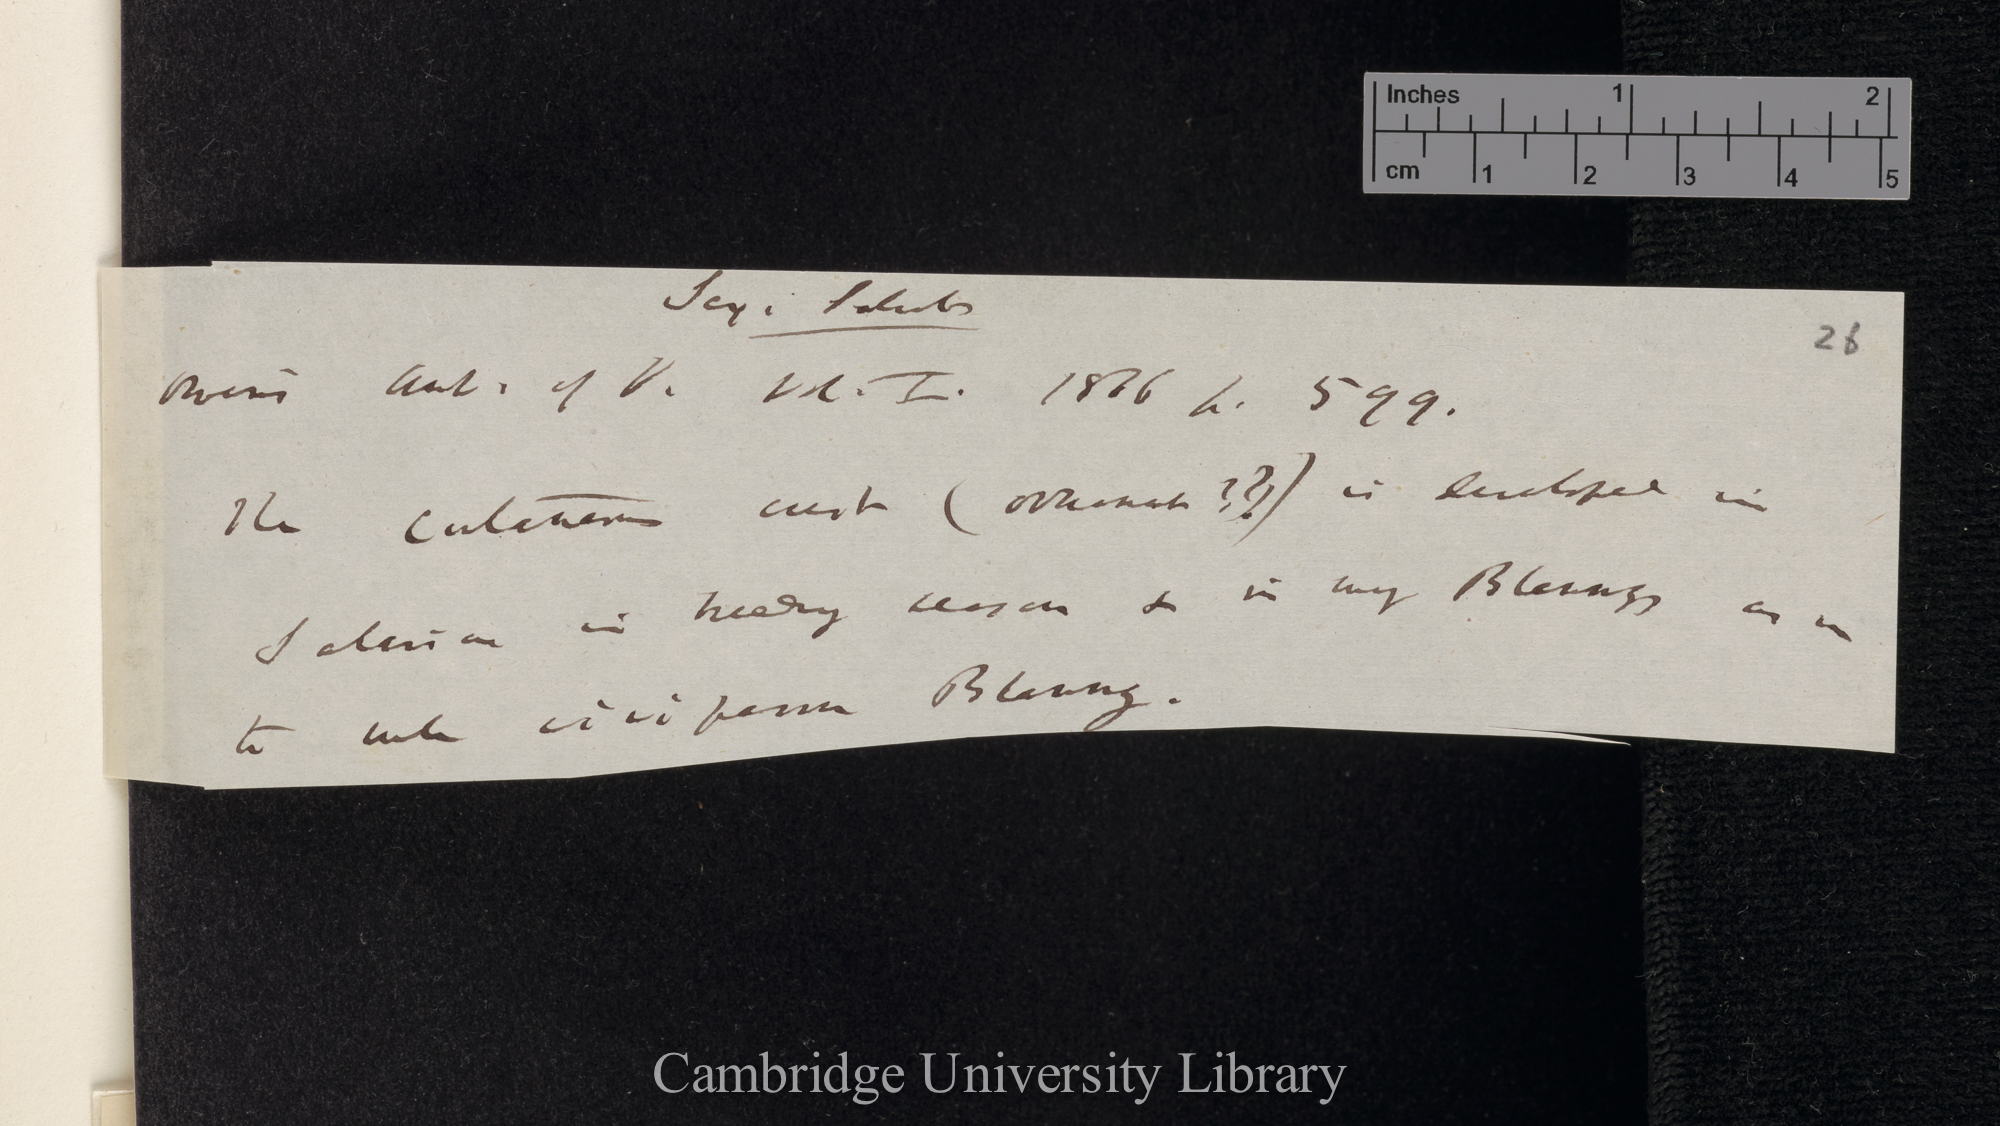 Inches 1 2
cm 1 2 3 4 5
Sex: Select
28
Owens Anat. of V. Vol. I. 1866 p. 599.
The cutaneous crest (ornament ??) is developed in
Salarias in breeding season & in my Blennys as in
the male viviparous Blenny.
Cambridge University Library